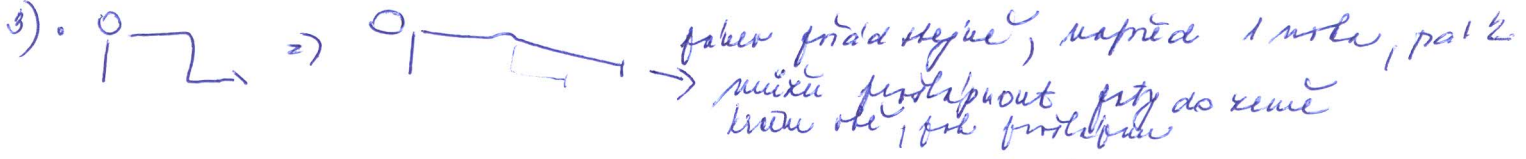 3). => pánev pořád stejně, napřed 1 noha, pak 2
→ můžu prošlápnout paty do země
krčím obě, pak prošlápnu